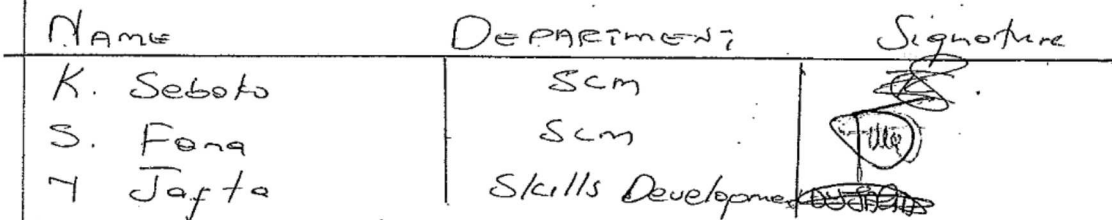 Name Department Signature
K. Seboko Scm
S. Fona Scm
Y Jafta Skills Development